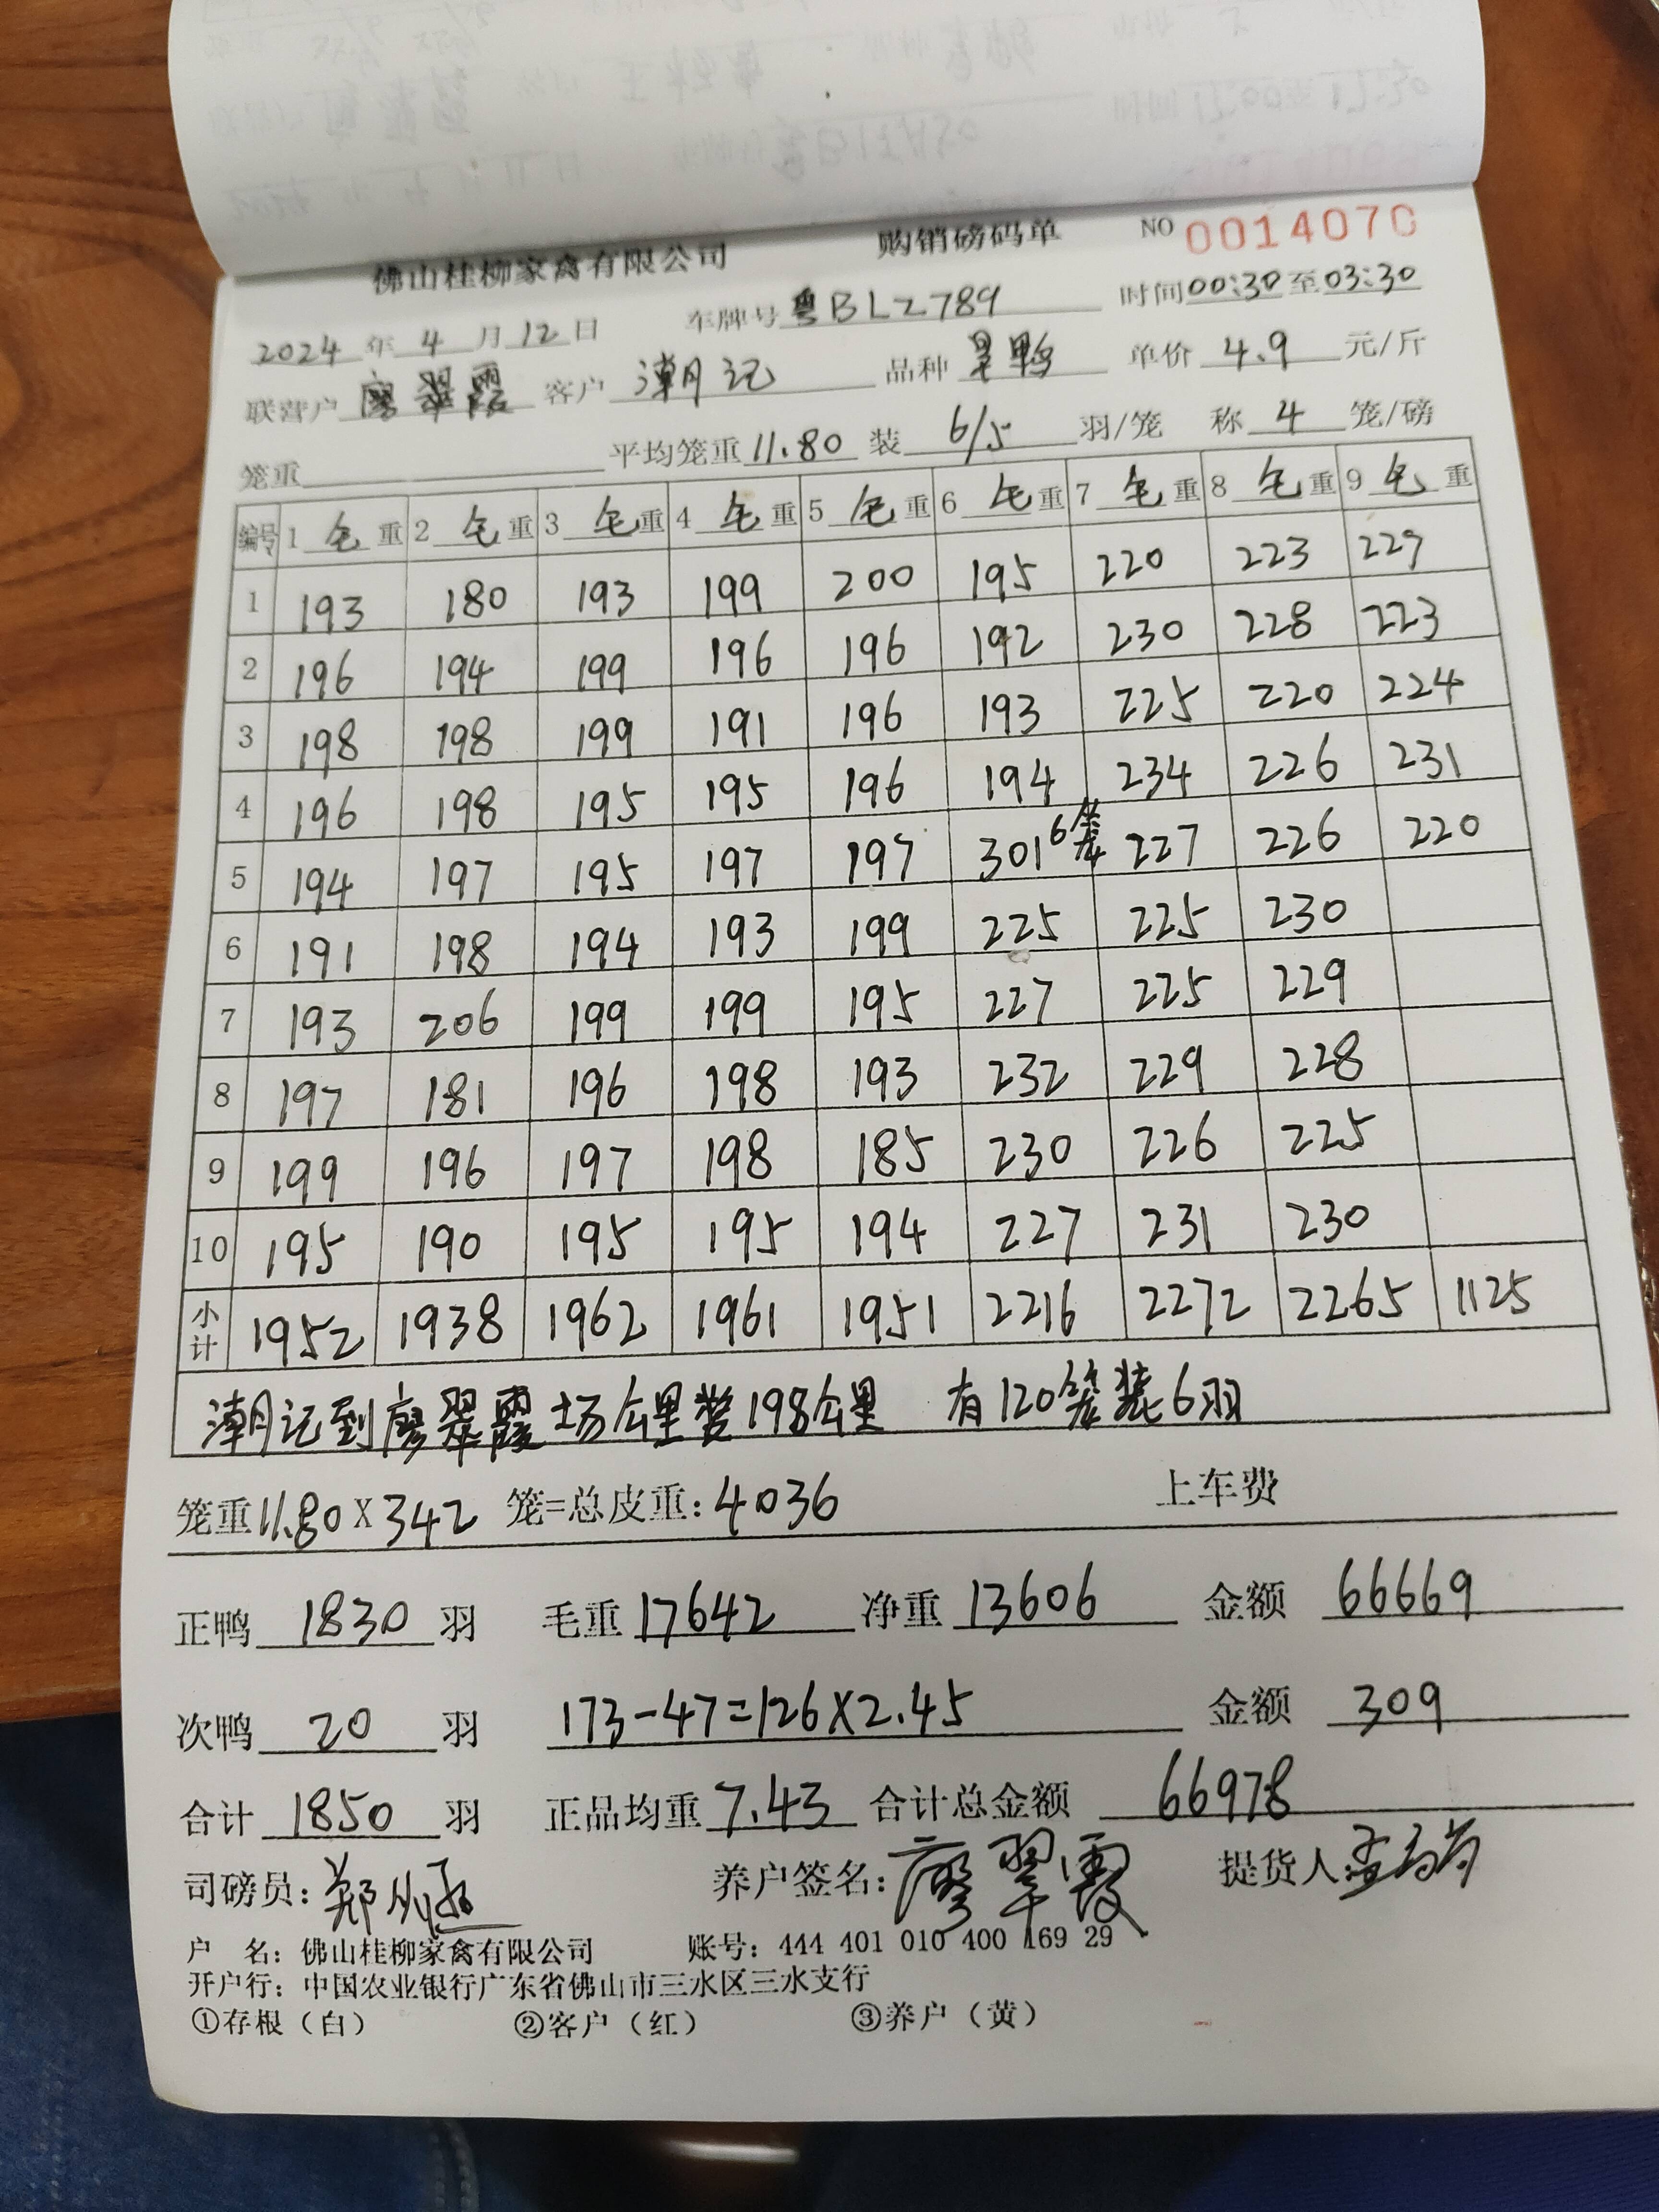 佛山桂柳家禽有限公司 购销磅码单 NO 0014070
2024年4月12日 车牌号粤BLZ789 时间00:30至03:30
联营户廖翠霞 客户潮记 品种 单价4.9元/斤
笼重 平均笼重11.80 装6/5羽/笼 称4笼/磅
编号 1毛重 2毛重 3毛重 4毛重 5毛重 6毛重 7毛重 8毛重 9毛重
1 193 180 193 199 200 195 220 223 227
2 196 194 199 196 196 192 230 228 223
3 198 198 199 191 196 193 225 220 224
4 196 198 195 195 196 194 234 226 231
5 194 197 195 197 197 301 6笼 227 226 220
6 191 198 194 193 199 225 225 230
7 193 206 199 199 195 227 225 229
8 197 181 196 198 193 232 229 228
9 199 196 197 198 185 230 226 225
10 195 190 195 195 194 227 231 230
小计 1952 1938 1962 1961 1951 2216 2272 2265 1125
潮记到廖翠霞场公里数198公里 有120笼装6羽
笼重11.80X342笼=总皮重:4036 上车费
正鸭1830羽 毛重17642 净重13606 金额66669
次鸭20羽 173-47=126X2.45 金额309
合计1850羽 正品均重7.43 合计总金额66978
司磅员:郑 养户签名:廖翠霞 提货人
户 名:佛山桂柳家禽有限公司 账号:444 401 010 400 169 29
开户行:中国农业银行广东省佛山市三水区三水支行
①存根(白) ②客户(红) ③养户(黄)